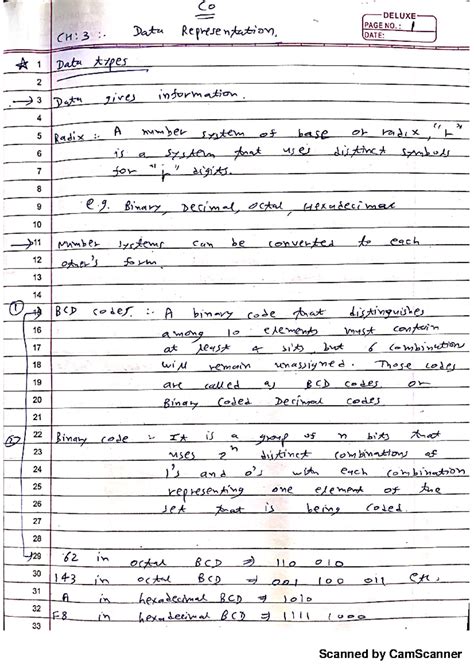 CO
CH: 3 :- Data Representation.
DELUXE
PAGE NO.: 1
DATE:
☆ 1 Data types
2
→ 3 Data gives information.
4
5 Radix :- A number system of base or radix, "r"
6 is a system that uses distinct symbols
7 for "r" digits.
8
9 e.g. Binary, Decimal, Octal, Hexadecimal
10
→ 11 Number systems can be converted to each
12 other's form.
13
14
① 15 BCD codes :- A binary code that distinguishes
16 among 10 elements must contain
17 at least 4 bits but 6 combination
18 will remain unassigned. Those codes
19 are called as BCD codes or
20 Binary Coded Decimal codes
21
② 22 Binary code :- It is a group of n bits that
23 uses 2ⁿ distinct combinations of
24 1's and 0's with each combination
25 representing one element of the
26 set that is being coded.
27
28
→ 29 62 in octal BCD ⇒ 110 010
30 143 in octal BCD ⇒ 001 100 011 etc.
31 A in hexadecimal BCD ⇒ 1010
32 F8 in hexadecimal BCD ⇒ 1111 1000
33
Scanned by CamScanner